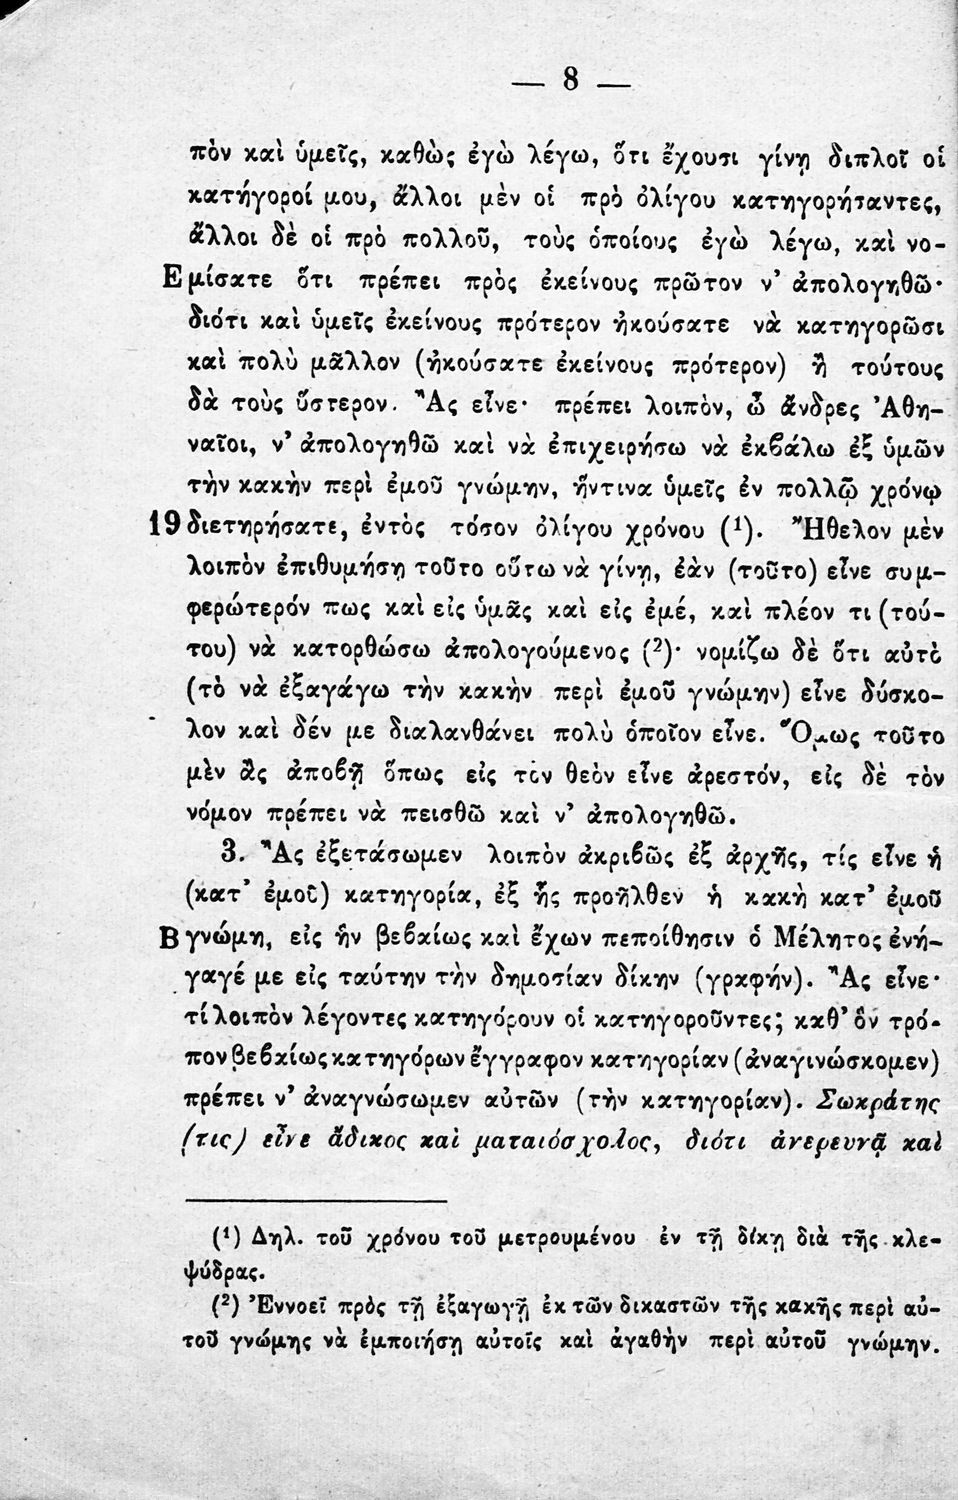 — 8 —
πὸν καὶ ὑμεῖς, καθὼς ἐγὼ λέγω, ὅτι ἔχουσι γίνῃ διπλοῖ οἱ
κατήγοροί μου, ἄλλοι μὲν οἱ πρὸ ὀλίγου κατηγορήσαντες,
ἄλλοι δὲ οἱ πρὸ πολλοῦ, τοὺς ὁποίους ἐγὼ λέγω, καὶ νο-
Ε μίσατε ὅτι πρέπει πρὸς ἐκείνους πρῶτον ν’ ἀπολογηθῶ·
διότι καὶ ὑμεῖς ἐκείνους πρότερον ἠκούσατε νὰ κατηγορῶσι
καὶ πολὺ μᾶλλον (ἠκούσατε ἐκείνους πρότερον) ἢ τούτους
δὰ τοὺς ὕστερον. Ἂς εἶνε· πρέπει λοιπὸν, ὦ ἄνδρες Ἀθη-
ναῖοι, ν’ ἀπολογηθῶ καὶ νὰ ἐπιχειρήσω νὰ ἐκβάλω ἐξ ὑμῶν
τὴν κακὴν περὶ ἐμοῦ γνώμην, ἥντινα ὑμεῖς ἐν πολλῷ χρόνῳ
19 διετηρήσατε, ἐντὸς τόσον ὀλίγου χρόνου (¹). Ἤθελον μὲν
λοιπὸν ἐπιθυμήσῃ τοῦτο οὕτω νὰ γίνῃ, ἐὰν (τοῦτο) εἶνε συμ-
φερώτερόν πως καὶ εἰς ὑμᾶς καὶ εἰς ἐμέ, καὶ πλέον τι (τού-
του) νὰ κατορθώσω ἀπολογούμενος (²)· νομίζω δὲ ὅτι αὐτὸ
(τὸ νὰ ἐξαγάγω τὴν κακὴν περὶ ἐμοῦ γνώμην) εἶνε δύσκο-
λον καὶ δέν με διαλανθάνει πολὺ ὁποῖον εἶνε. Ὅμως τοῦτο
μὲν ἂς ἀποβῇ ὅπως εἰς τὸν θεὸν εἶνε ἀρεστόν, εἰς δὲ τὸν
νόμον πρέπει νὰ πεισθῶ καὶ ν’ ἀπολογηθῶ.
3. Ἂς ἐξετάσωμεν λοιπὸν ἀκριβῶς ἐξ ἀρχῆς, τίς εἶνε ἡ
(κατ’ ἐμοῦ) κατηγορία, ἐξ ἧς προῆλθεν ἡ κακὴ κατ’ ἐμοῦ
Β γνώμη, εἰς ἣν βεβαίως καὶ ἔχων πεποίθησιν ὁ Μέλητος ἐνή-
γαγέ με εἰς ταύτην τὴν δημοσίαν δίκην (γραφήν). Ἂς εἶνε·
τί λοιπὸν λέγοντες κατηγόρουν οἱ κατηγοροῦντες; καθ’ ὃν τρό-
πον βεβαίως κατηγόρων ἔγγραφον κατηγορίαν (ἀναγινώσκομεν)
πρέπει ν’ ἀναγνώσωμεν αὐτῶν (τὴν κατηγορίαν). Σωκράτης
(τις) εἶνε ἄδικος καὶ ματαιόσχολος, διότι ἀνερευνᾷ καὶ
(¹) Δηλ. τοῦ χρόνου τοῦ μετρουμένου ἐν τῇ δίκῃ διὰ τῆς κλε-
ψύδρας.
(²) Ἐννοεῖ πρὸς τῇ ἐξαγωγῇ ἐκ τῶν δικαστῶν τῆς κακῆς περὶ αὐ-
τοῦ γνώμης νὰ ἐμποιήσῃ αὐτοῖς καὶ ἀγαθὴν περὶ αὐτοῦ γνώμην.